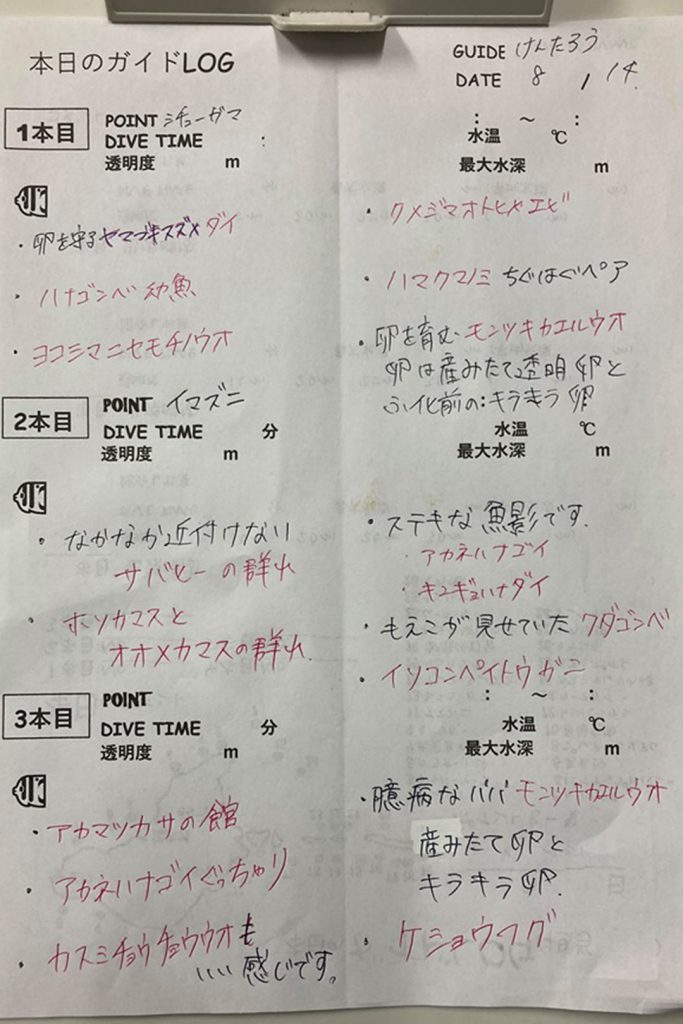 本日のガイドLOG
GUIDE けんたろう
DATE 8 / 14
1本目
POINT シチューガマ
DIVE TIME :
透明度 m
: ~ :
水温 ℃
最大水深 m
・卵を守るヤマブキスズメダイ
・ハナゴンベ幼魚
・ヨコシマニセモチノウオ
・クメジマオトヒメエビ
・ハマクマノミ ちぐはぐペア
・卵を育むモンツキカエルウオ
卵は産みたて透明卵と
ふ化前の:キラキラ卵
2本目
POINT イマズニ
DIVE TIME 分
透明度 m
水温 ℃
最大水深 m
・なかなか近付けない
サバヒーの群れ
・ホソカマスと
オオメカマスの群れ.
・ステキな魚影です.
・アカネハナゴイ
・キンギョハナダイ
・もえこが見せていたクダゴンベ
・イソコンペイトウガニ
3本目
POINT
DIVE TIME 分
透明度 m
: ~ :
水温 ℃
最大水深 m
・アカマツカサの館
・アカネハナゴイぐっちゃり
・カスミチョウチョウウオも
いい感じです。
・臆病なパパモンツキカエルウオ
産みたて卵と
キラキラ卵.
・ケショウフグ